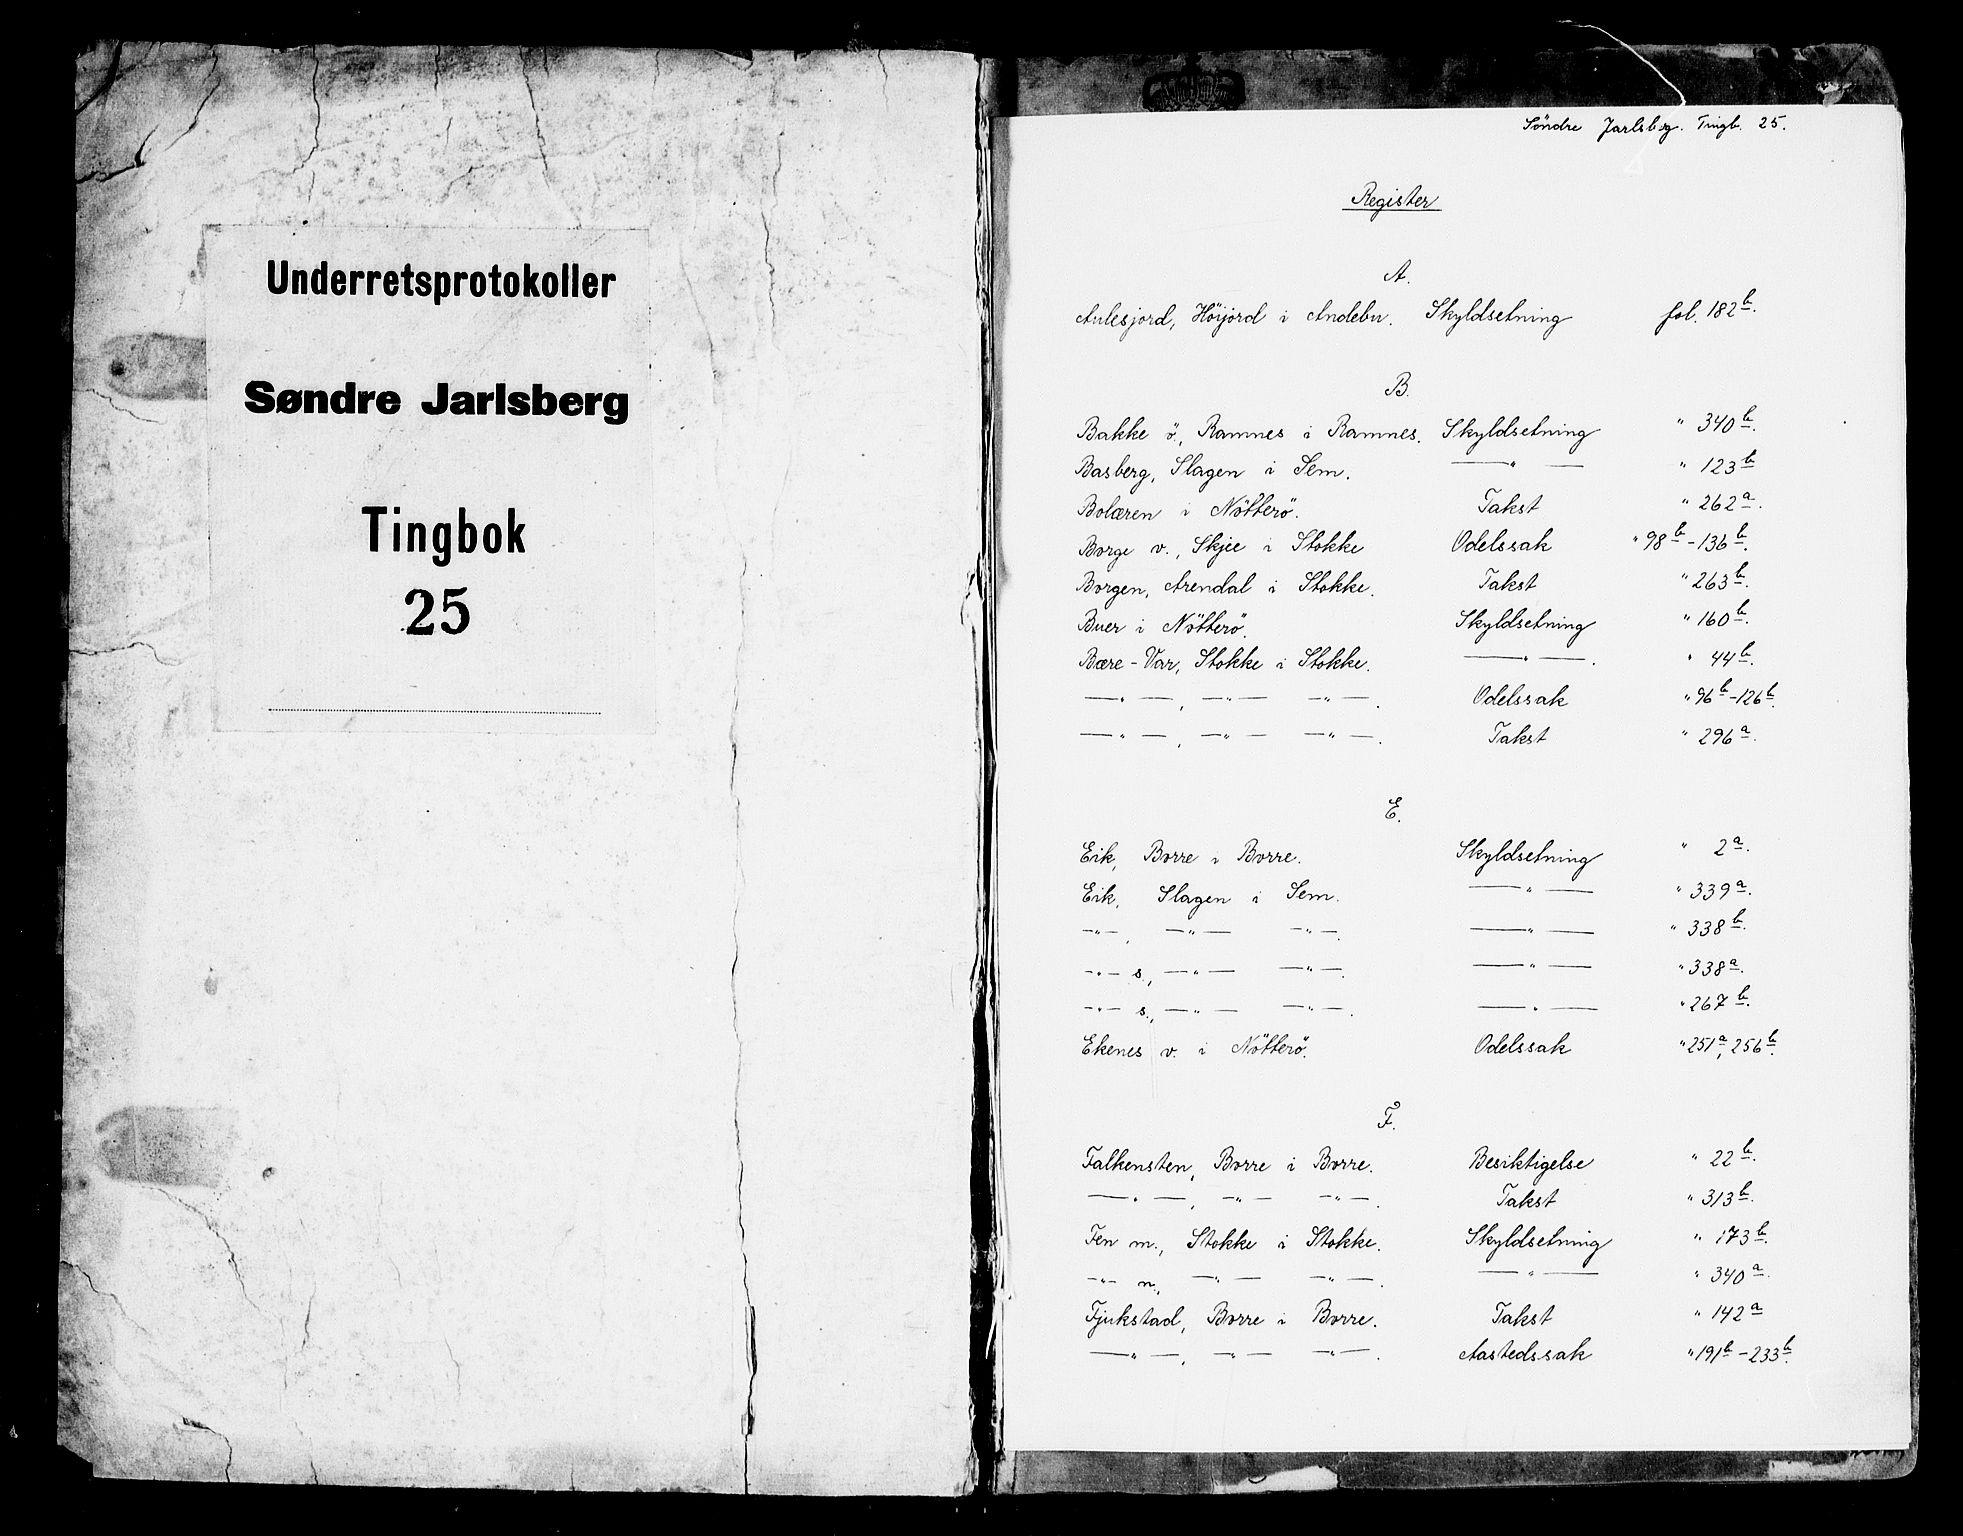 Underretsprotokoller
Søndre Jarlsberg
Tingbok
25
Söndre Jarlsberg. Tingb. 25.
Register
A.
Aulesjord, Höijord i Andebu. Skyldsetning fol. 182 b.
B.
Bakke ö., Ramnes i Ramnes. Skyldsetning " 340 b.
Basberg, Slagen i Sem. —"— " 123 b
Bolæren i Nötterö. Takst " 262 a.
Borge v., Skjee i Stokke Odelssak " 98 b - 136 b.
Borgen, Arendal i Stokke. Takst " 263 b.
Buer i Nötterö. Skyldsetning " 160 b.
Bære-Var, Stokke i Stokke. —"—. " 44 b.
—"—, —"— —"—. Odelssak " 96 b - 126 b.
—"—, —"— —"—. Takst " 296 a.
E.
Eik, Borre i Borre. Skyldsetning " 2 a.
Eik, Slagen i Sem. —"— " 339 a.
—"—, —"— —"—. —"— " 338 b.
—"— s., —"— —"—. —"— " 338 a.
—"— s., —"— —"—. —"— " 267 b.
Ekenes v. i Nötterö. Odelssak " 251 a, 256 b.
F.
Falkensten, Borre i Borre. Besiktigelse " 22 b.
—"—, —"— —"—. Takst " 313 b.
Fen m., Stokke i Stokke. Skyldsetning " 173 b.
—"— n., —"— —"—. —"— " 340 a.
Fjukstad, Borre i Borre. Takst " 142 a
—"—, —"— —"—. Aastedssak " 191 b - 233 b.